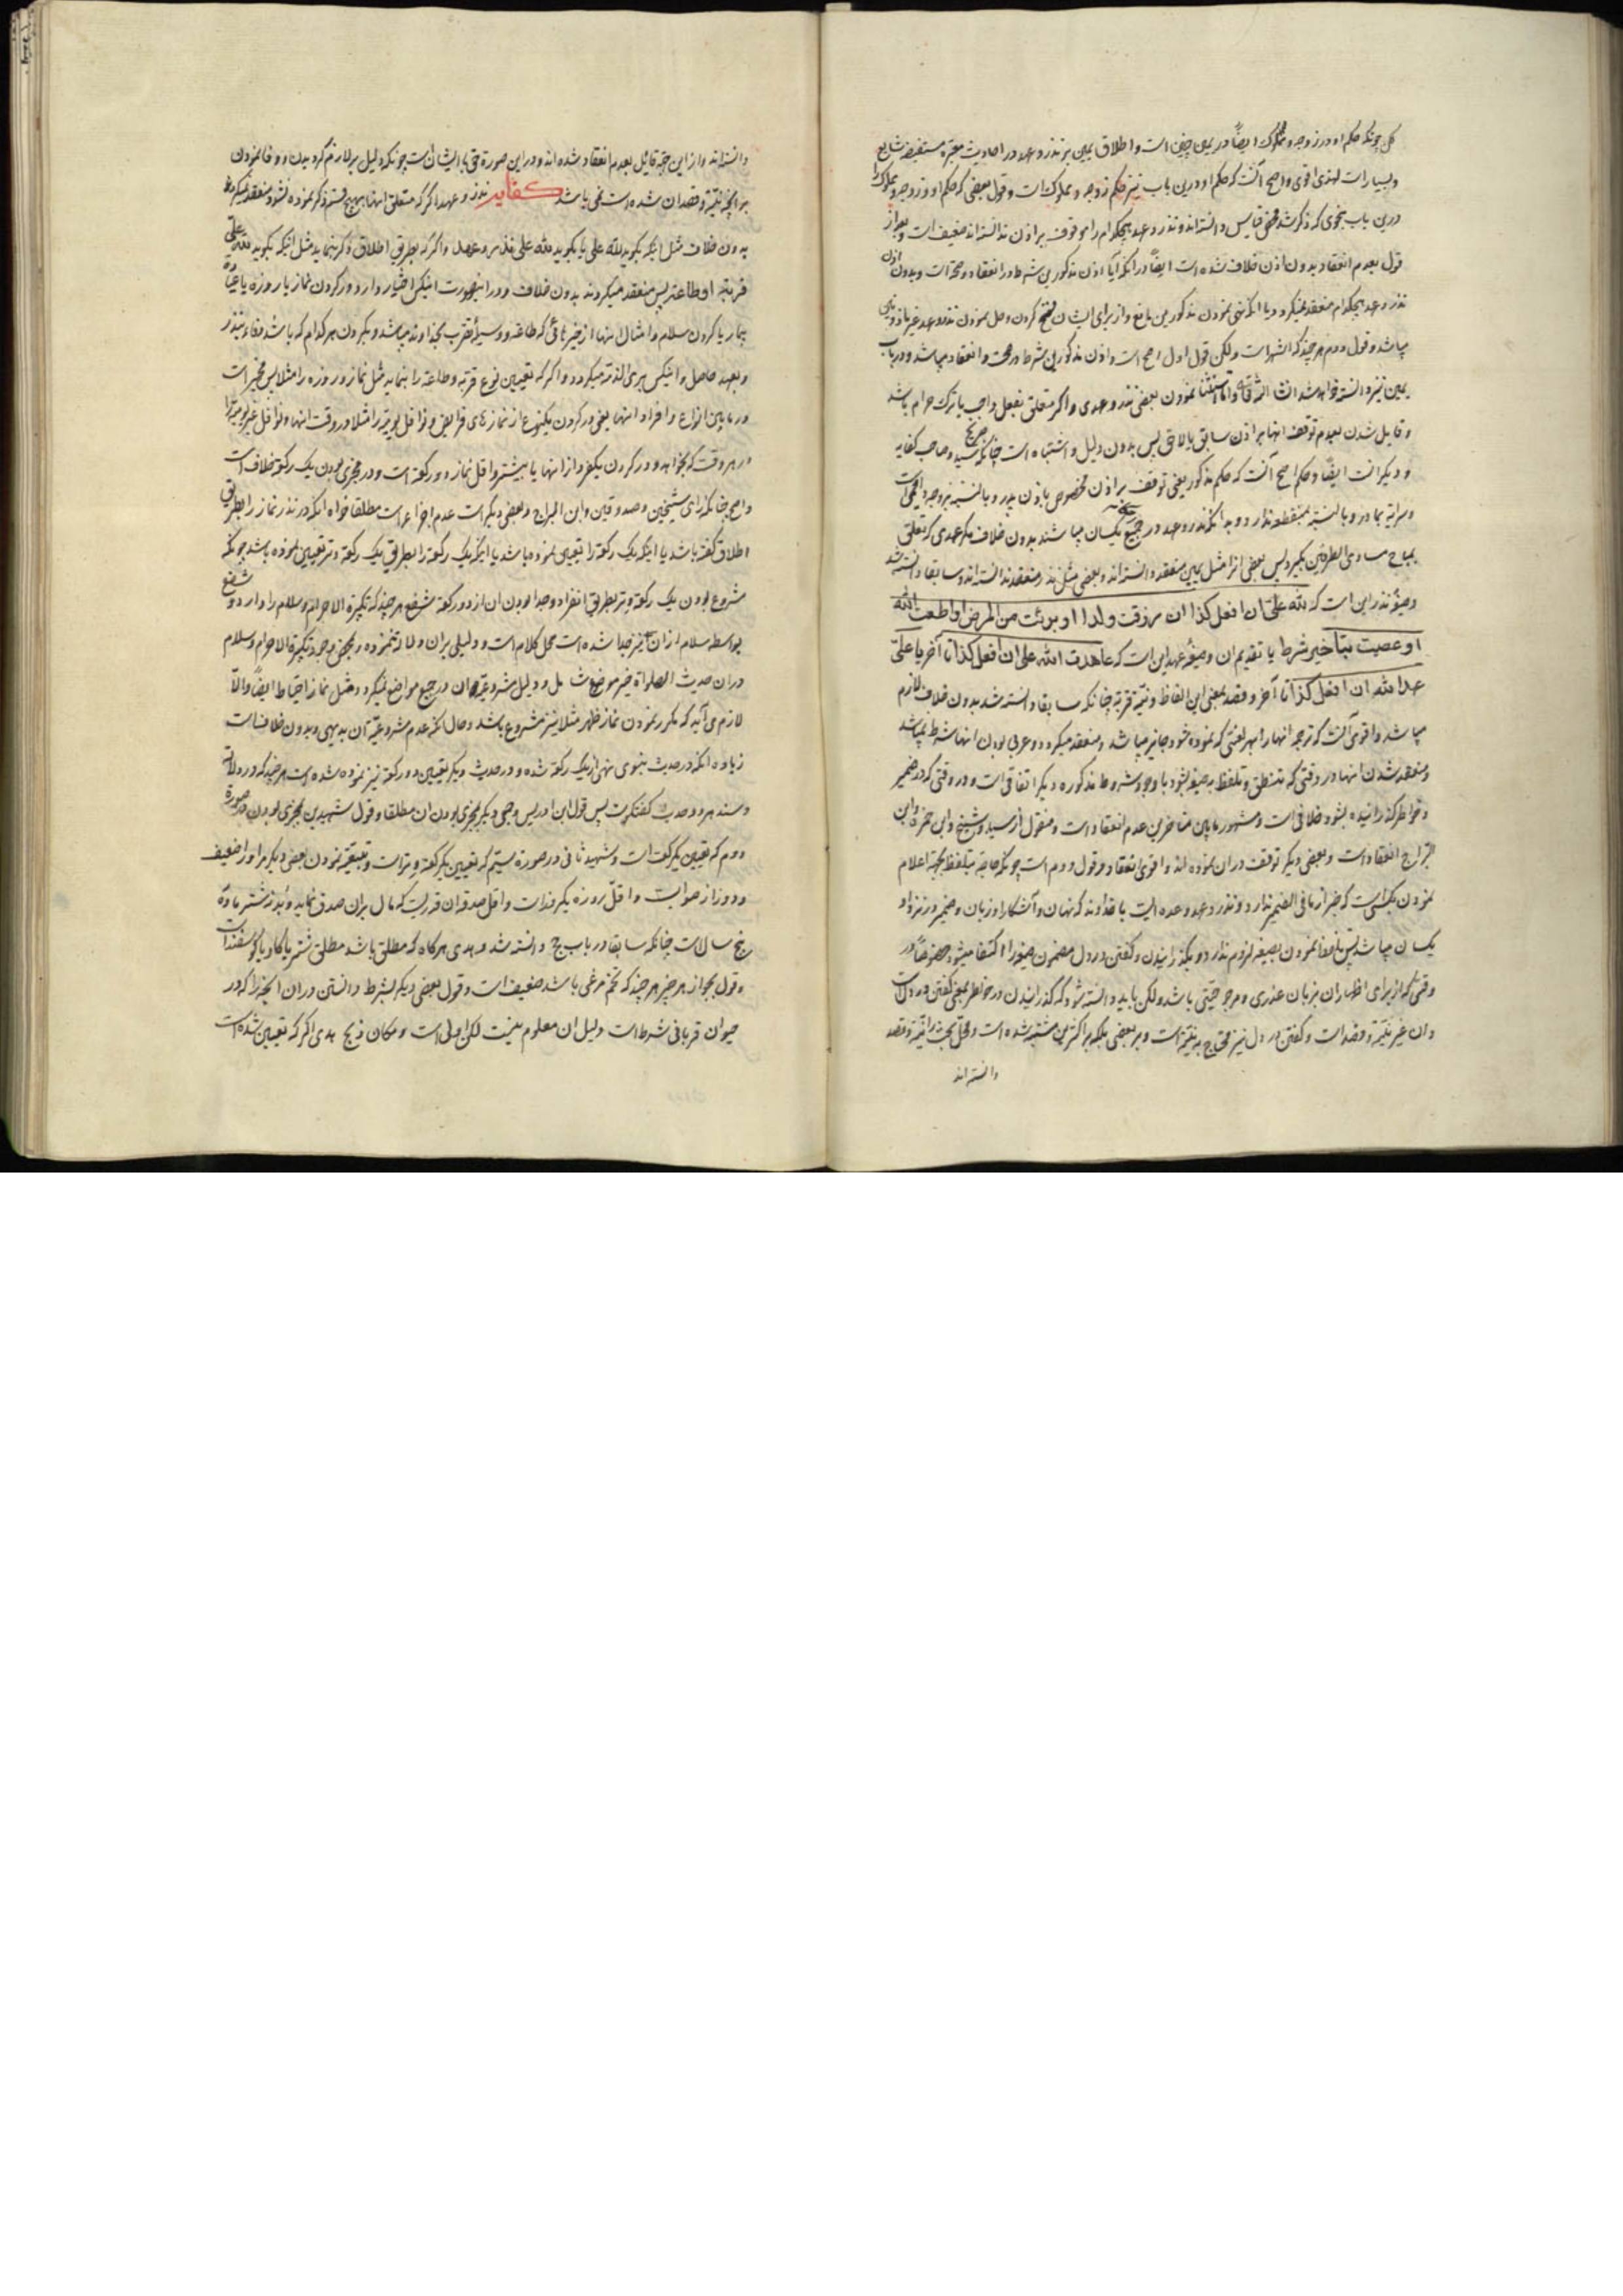 کل چونکه حکم او در زوجه و مملوک ایضًا در یمین چنین است و اطلاق یمین بر نذر و عهد در احادیث معتبره مستفیضه شایع
و بسیار است لهذا اقوی و اصح آنست که حکم او درین باب نیز حکم زوجه و مملوک است و قول بعضی که حکم او و زوجه و مملوک را
درین باب بنحوی که ذکر شد محض قیاس دانسته‌اند و نذر و عهد هیچکدام را موقوف بر اذن ندانسته‌اند ضعیف است و بعد از
قول بعدم انعقاد بدون اذن خلاف شده است ایضًا در آنکه آیا اذن مذکورین شرط در انعقاد و صحة است و بدون اذن
نذر و عهد هیچکدام منعقد نمیگردد یا آنکه نهی نمودن مذکورین مانع و از برای ایشان فسخ کردن و حل نمودن نذر و عهد غیر ماذون
میباشد و قول دوم هر چند که اشهر است ولکن قول اول اصح است و اذن مذکورین شرط در صحت و انعقاد میباشد و در باب
یمین نیز دانسته خواهد شد انشا الله تعالی و اما استثنا نمودن بعضی نذر و عهدی را که متعلق بفعل واجب یا ترک حرام باشد
و قایل شدن بعدم توقف آنها بر اذن سابق یا لاحق پس بدون دلیل و اشتباه است چنانکه صریح سید و صاحب کفایه
و دیگرانست ایضًا و حکم اصح آنست که حکم مذکور یعنی توقف بر اذن مخصوص باذن پدر و بالنسبة بزوجه دایمی است
و سرایة بمادر و بالنسبة بمنقطعه ندارد و بدانکه نذر و عهد در جمیع یکسان میباشند بدون خلاف مگر عهدی که تعلق
بمباح مساوی الطرفین بگیرد پس بعضی انرا مثل یمین منعقد دانسته‌اند و بعضی مثل نذر منعقد ندانسته‌اند و سابقا دانسته شد
و صیغه نذر این است که لله علیّ ان افعل کذا ان رزقت ولدا او برئت من المرض او اطعت الله
او عصیت بتأخیر شرط یا تقدیم ان و صیغه عهد این است که عاهدت الله علی ان افعل کذا تا آخر یا علیّ
عهد الله ان افعل کذا تا آخر و قصد بمعنی این الفاظ و نیّة قربة چنانکه سابقا دانسته شد بدون خلاف لازم
میباشد و اقوی آنست که ترجمه انها را بهر لغتی که نموده شود جایز میباشد و منعقد میگردد و عربی بودن انها شرط نمیباشد
و منعقد شدن انها در وقتی که تنطق و تلفظ به صیغه بشود با وجود شروط مذکوره دیگر اتفاقی است و در وقتی که در ضمیر
و خواطر گذرانیده بشود خلافی است و مشهور مابین متاخرین عدم انعقاد است و منقول از سید و شیخ و ابن حمزه و ابن
البراج انعقاد است و بعضی دیگر توقف در ان نموده‌اند و اقوی انعقاد و قول دوم است چونکه حاجة بتلفظ بجهة اعلام
نمودن بکسی است که خبر از مافی الضمیر ندارد و نذر و عهد وعده ایست با خداوند که نهان و آشکارا و زبان و ضمیر در نزد او
یکسان میباشد پس تلفظ نمودن بصیغه لزوم ندارد و بگذرانیدن و گفتن در دل مضمون صیغه را اکتفا میشود خصوصًا در
وقتی که از برای اظهار ان بزبان عذری و مرجوحیّتی باشد ولکن باید دانسته شود که گذرانیدن در خواطر بمعنی گفتن در دل است
و ان غیر نیّة و قصد است و گفتن در دل نیز محتاج به نیّة است و بر بعضی بلکه بر اکثرین مشتبه شده است و محل بحث را نیّة و قصد
دانسته‌اند
دانسته‌اند و از این جهة قائل بعدم انعقاد شده‌اند و در این صورة حق با ایشان است چونکه دلیل بر لازم گردیدن و وفا نمودن
بر آنچه نیّة و قصد ان شده است نمی‌باشد کفایه نذر و عهد اگر که متعلق انها بهیچ قسم ذکر نموده نشود منعقد نمیگردد
بدون خلاف مثل اینکه بگوید لله علی یا بگوید لله علی نذر و عهد و اگر که بطریق اطلاق ذکر بنماید مثل اینکه بگوید لله علیّ
قربة او طاعة پس منعقد میگردند بدون خلاف و در اینصورت اینکس اختیار دارد در کردن نماز یا روزه یا عیادة
بیمار یا کردن سلام و امثال اینها از خیراتی که طاعة و وسیله تقرب بخداوند میباشد و بکردن هر کدام که باشد وفاء بنذر
و بعهد حاصل و اینکس بریء الذمة میگردد و اگر که تعیین نوع قربة و طاعة را بنماید مثل نماز و روزه را مثلا پس مخیر است
در مابین انواع و افراد انها یعنی در کردن یکنوع از نمازهای فرایض و نوافل یومیّه را مثلا در وقت انها و نوافل غیر یومیّه را
در هر وقت که بخواهد و در کردن یکفرد از انها یا بیشتر و اقل نماز دو رکعة است و در مجزی بودن یک رکعة خلاف است
و اصح چنانکه رأی شیخین و صدوقین و ابن البراج و بعضی دیگر است عدم اجزاء است مطلقا خواه آنکه در نذر نماز را بطریق
اطلاق گفته باشد یا اینکه یک رکعة را تعیین نموده باشد یا اینکه یک رکعة را بطریق یک رکعة وتر تعیین نموده باشد چونکه
مشروع بودن یک رکعة وتر بطریق انفراد و جدا بودن ان از دو رکعة شفع هر چند که تکبیرة الاحرام و سلام را دارد و شفع
بواسطه سلام از ان نیز جدا شده است محل کلام است و دلیلی بران دلالة ننموده و بمحض وجود تکبیرة الاحرام و سلام
در ان حدیث الصلواة خیر موضوع شامل و دلیل مشروعیّة ان در جمیع مواضع نمیگردد مثل نماز احتیاط ایضًا و الّا
لازم می‌آید که مکرر نمودن نماز ظهر مثلا نیز مشروع باشد و حال آنکه عدم مشروعیّة آن بدیهی و بدون خلاف است
زیاده آنکه در حدیث نبوی نهی از یک رکعة شده و در حدیث دیگر تعیین دو رکعة نیز نموده شده است هر چند که در دلالة
و سند هر دو حدیث گفتگو است پس قول ابن ادریس و جمعی دیگر بمجزی بودن ان مطلقا و قول شهیدین بمجزی بودن در صورة
دوم که تعیین یکرکعت است و شهید ثانی در صورة سیّم که تعیین یکرکعة وتر است و بتبعیّة نمودن بعضی دیگر مر او را ضعیف
و دور از صوابست و اقلّ روزه یکروز است و اقل صدقه ان قدریست که مال بران صدق نماید و بُدنه شتر ماده
پنج سالست چنانکه سابقا در باب حج دانسته شد و هدی هرگاه که مطلق باشد مطلق شتر یا گاو یا گوسفند است
و قول بجواز هر چیز هر چند که تخم مرغی باشد ضعیف است و قول بعضی دیگر بشرط دانستن در ان آنچه را که در
حیوان قربانی شرط است دلیل ان معلوم نیست لکن اولی است و مکان ذبح هدی اگر که تعیین شده است